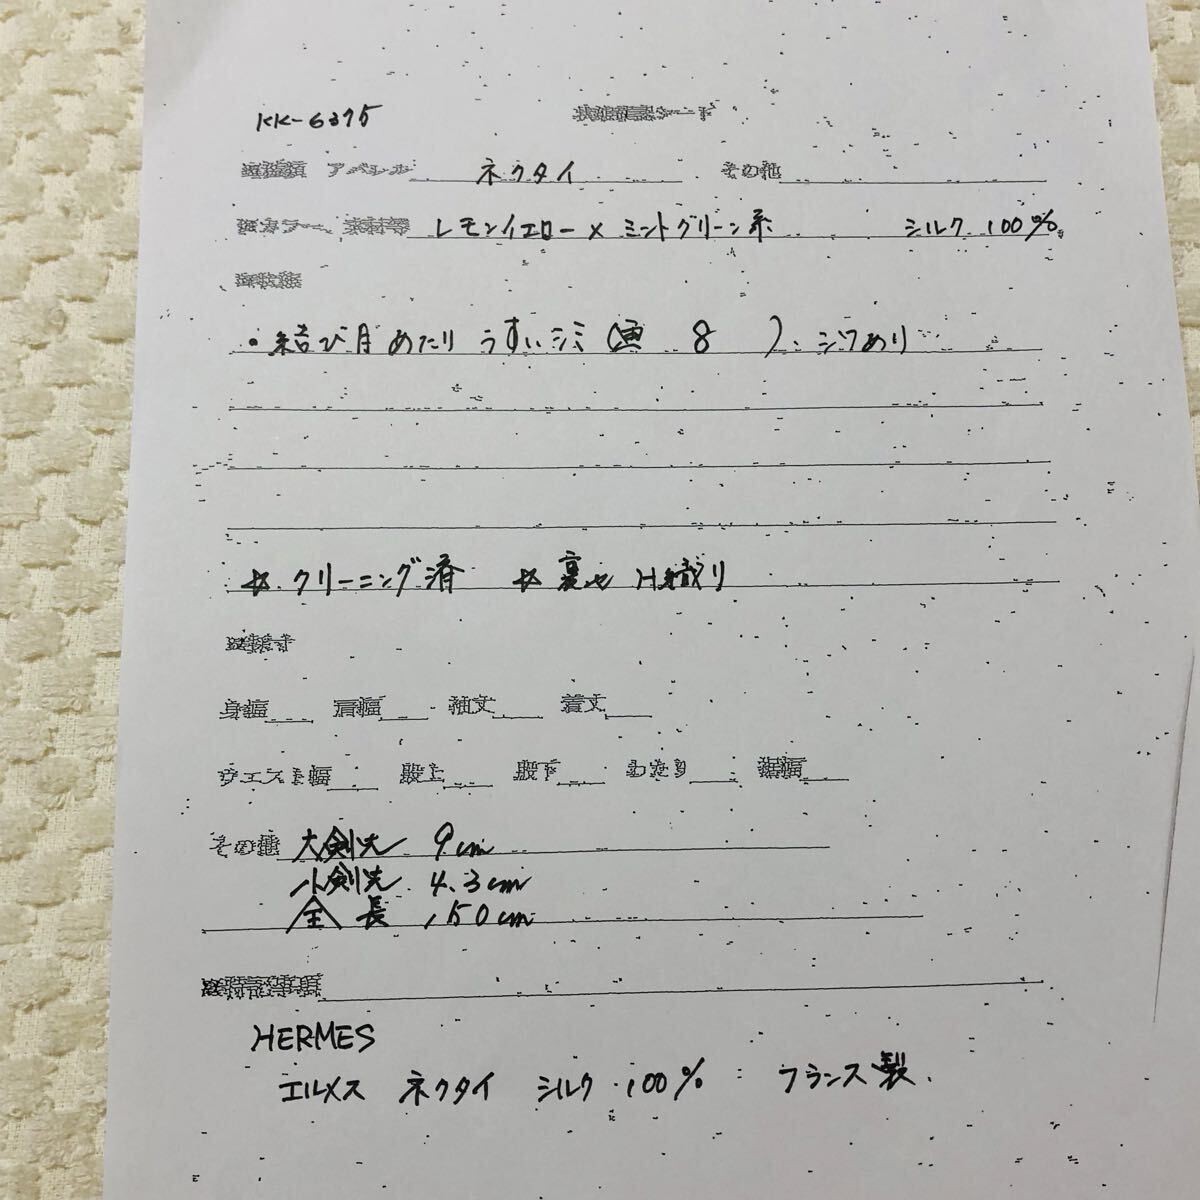 KK-6375 状態確認シート
アパレル ネクタイ その他
カラー、素材等 レモンイエロー×ミントグリーン系 シルク 100%
状態
・結び目あたり うすいシミ(画 8 )、シワあり
☆クリーニング済 ☆裏地 H織り
採寸
身幅 肩幅 袖丈 着丈
ウエスト幅 股上 股下 わたり 裾幅
その他 大剣先 9cm
小剣先 4.3cm
全長 150cm
特記事項
HERMES
エルメス ネクタイ シルク 100% フランス製